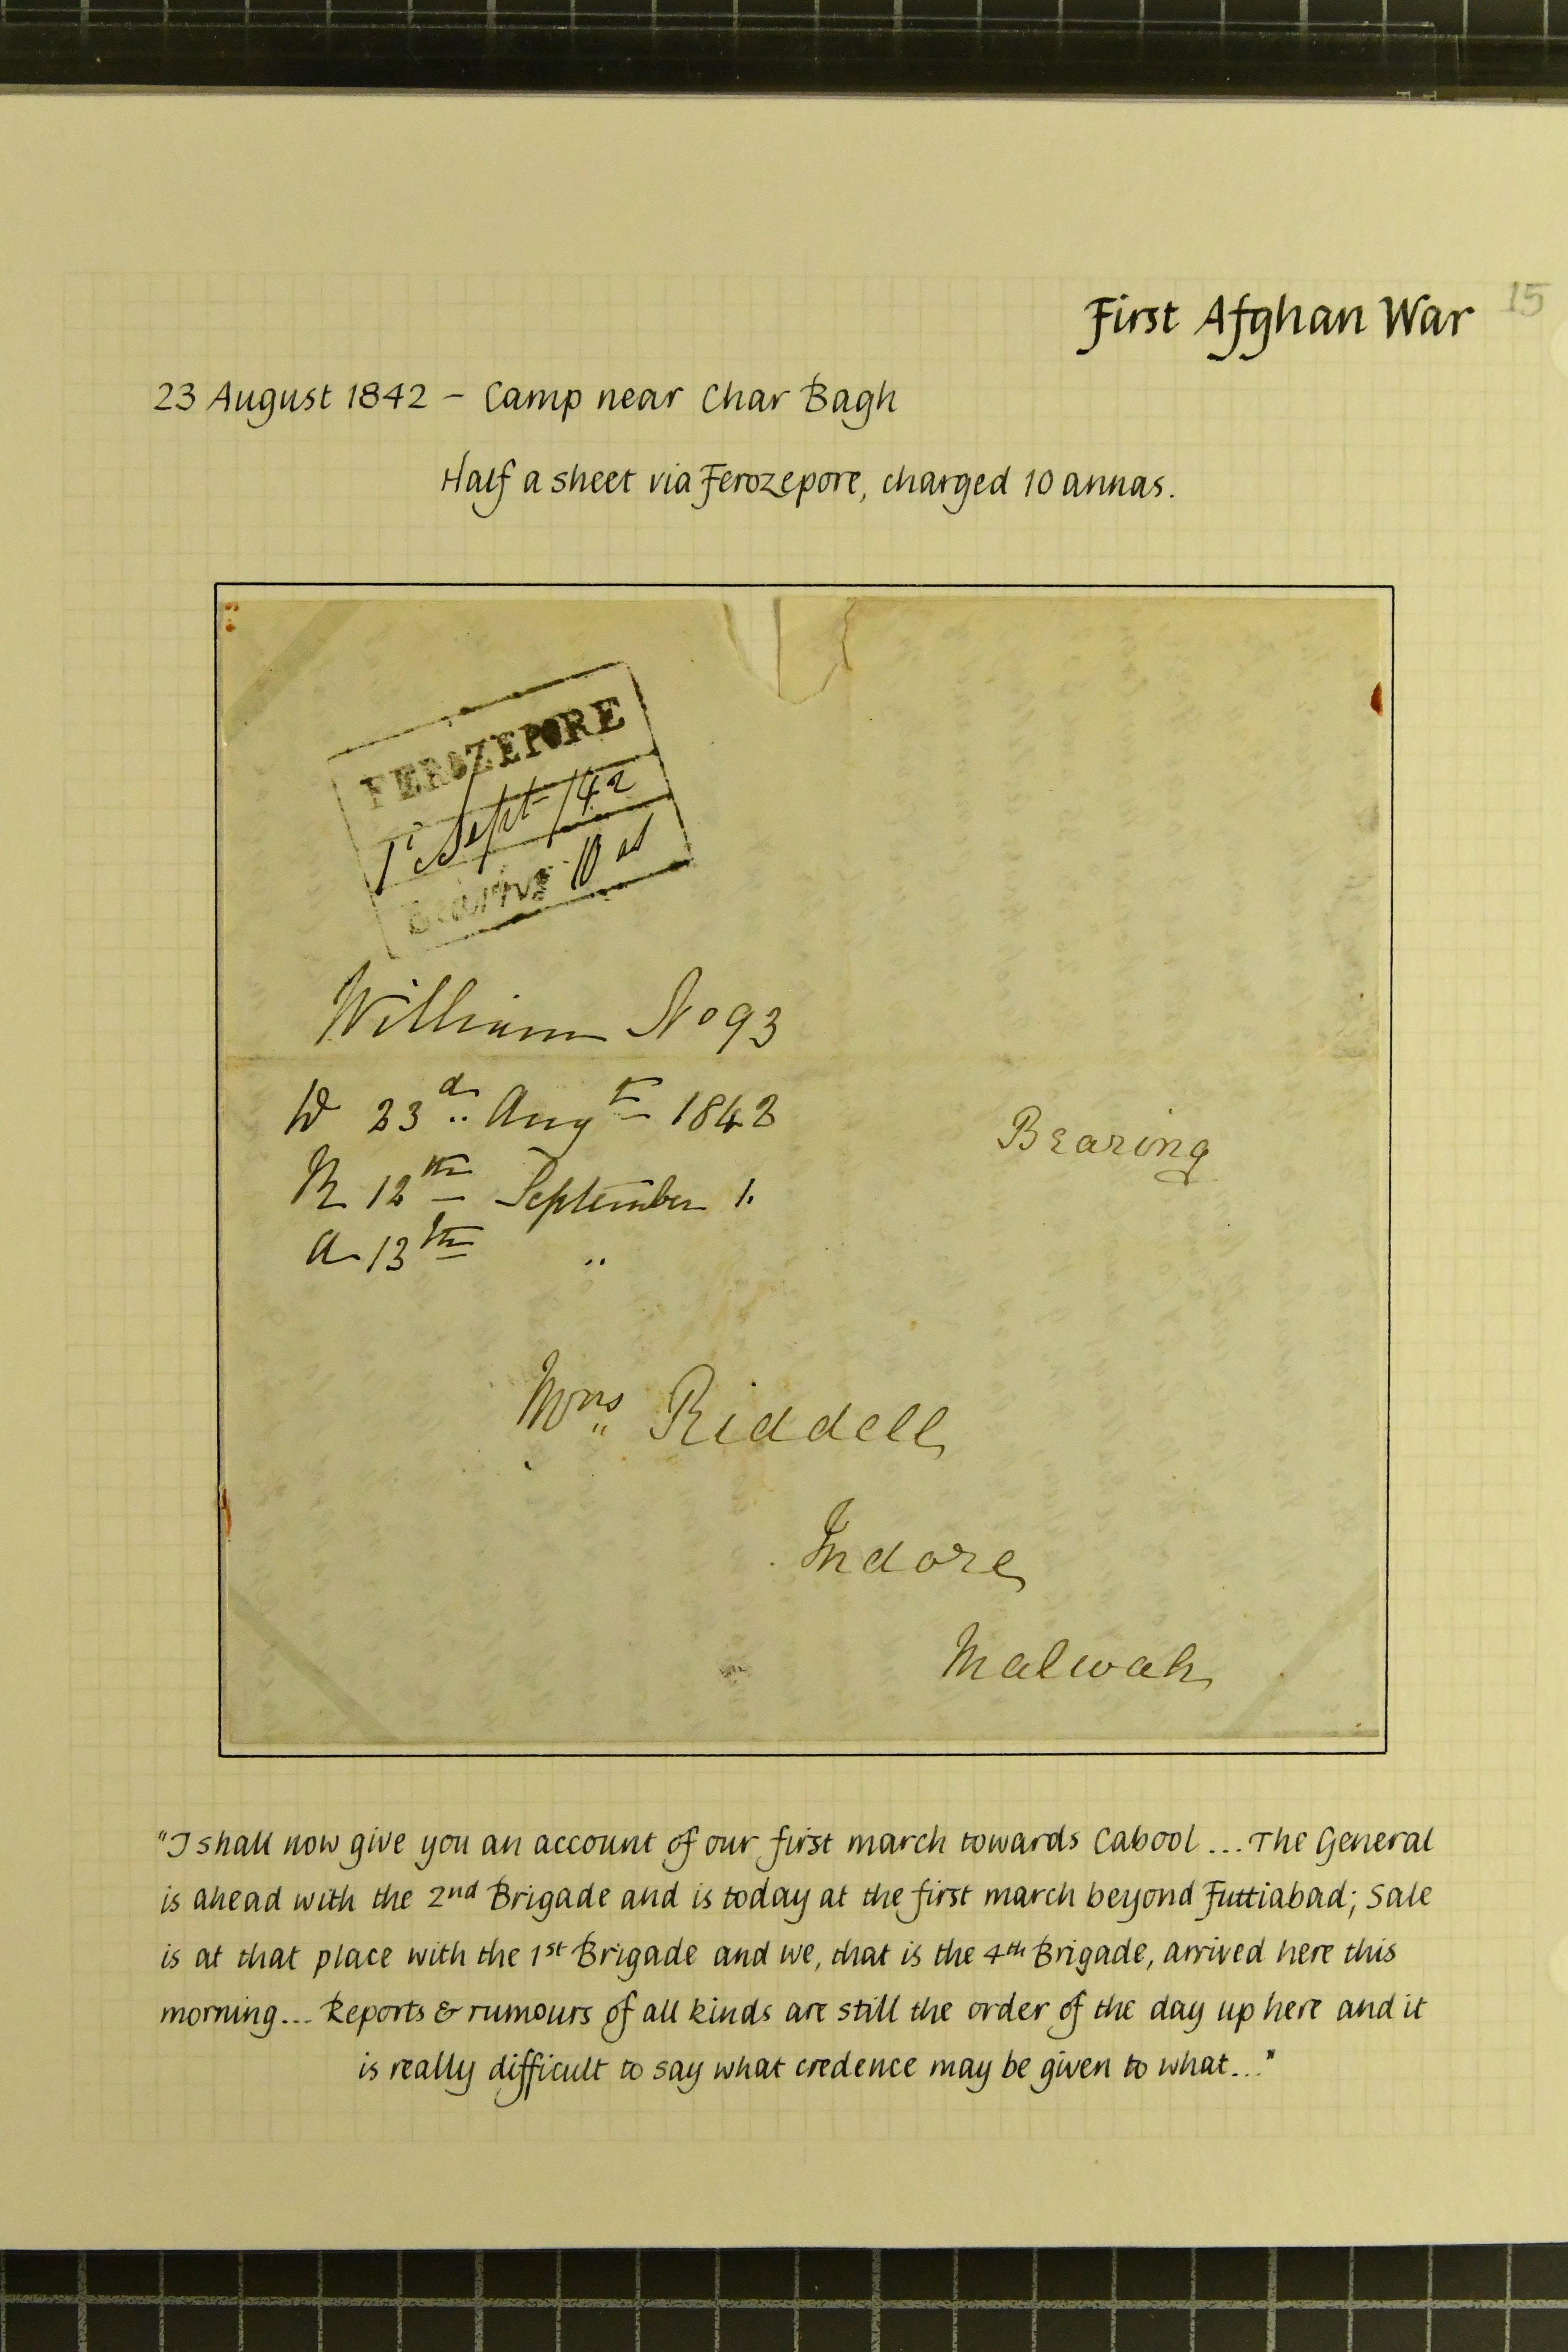 First Afghan War 15
23 August 1842 – Camp near Char Bagh
Half a sheet via Ferozepore, charged 10 annas.
FEROZEPORE
1 Sept 42
Bearing 10 as
William No 93
W 23d Augt 1842
R 12th September 1.
A 13th "
Bearing
Mrs Riddell
Indore
Malwah
"I shall now give you an account of our first march towards Cabool ... The General
is ahead with the 2nd Brigade and is today at the first march beyond Futtiabad; Sale
is at that place with the 1st Brigade and we, that is the 4th Brigade, arrived here this
morning... Reports & rumours of all kinds are still the order of the day up here and it
is really difficult to say what credence may be given to what..."